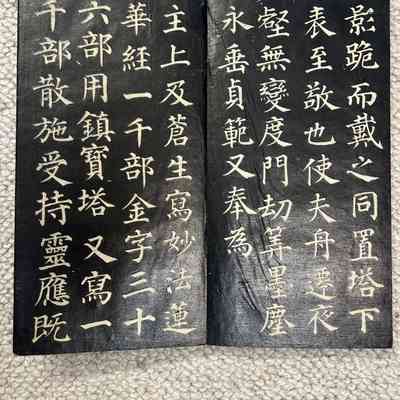 影跪而戴之同置塔下
表至敬也使夫舟遷夜
壑無變度門劫筭墨塵
永垂貞範又奉為
主上及蒼生寫妙法蓮
華經一千部金字三十
六部用鎮寶塔又寫一
千部散施受持靈應既